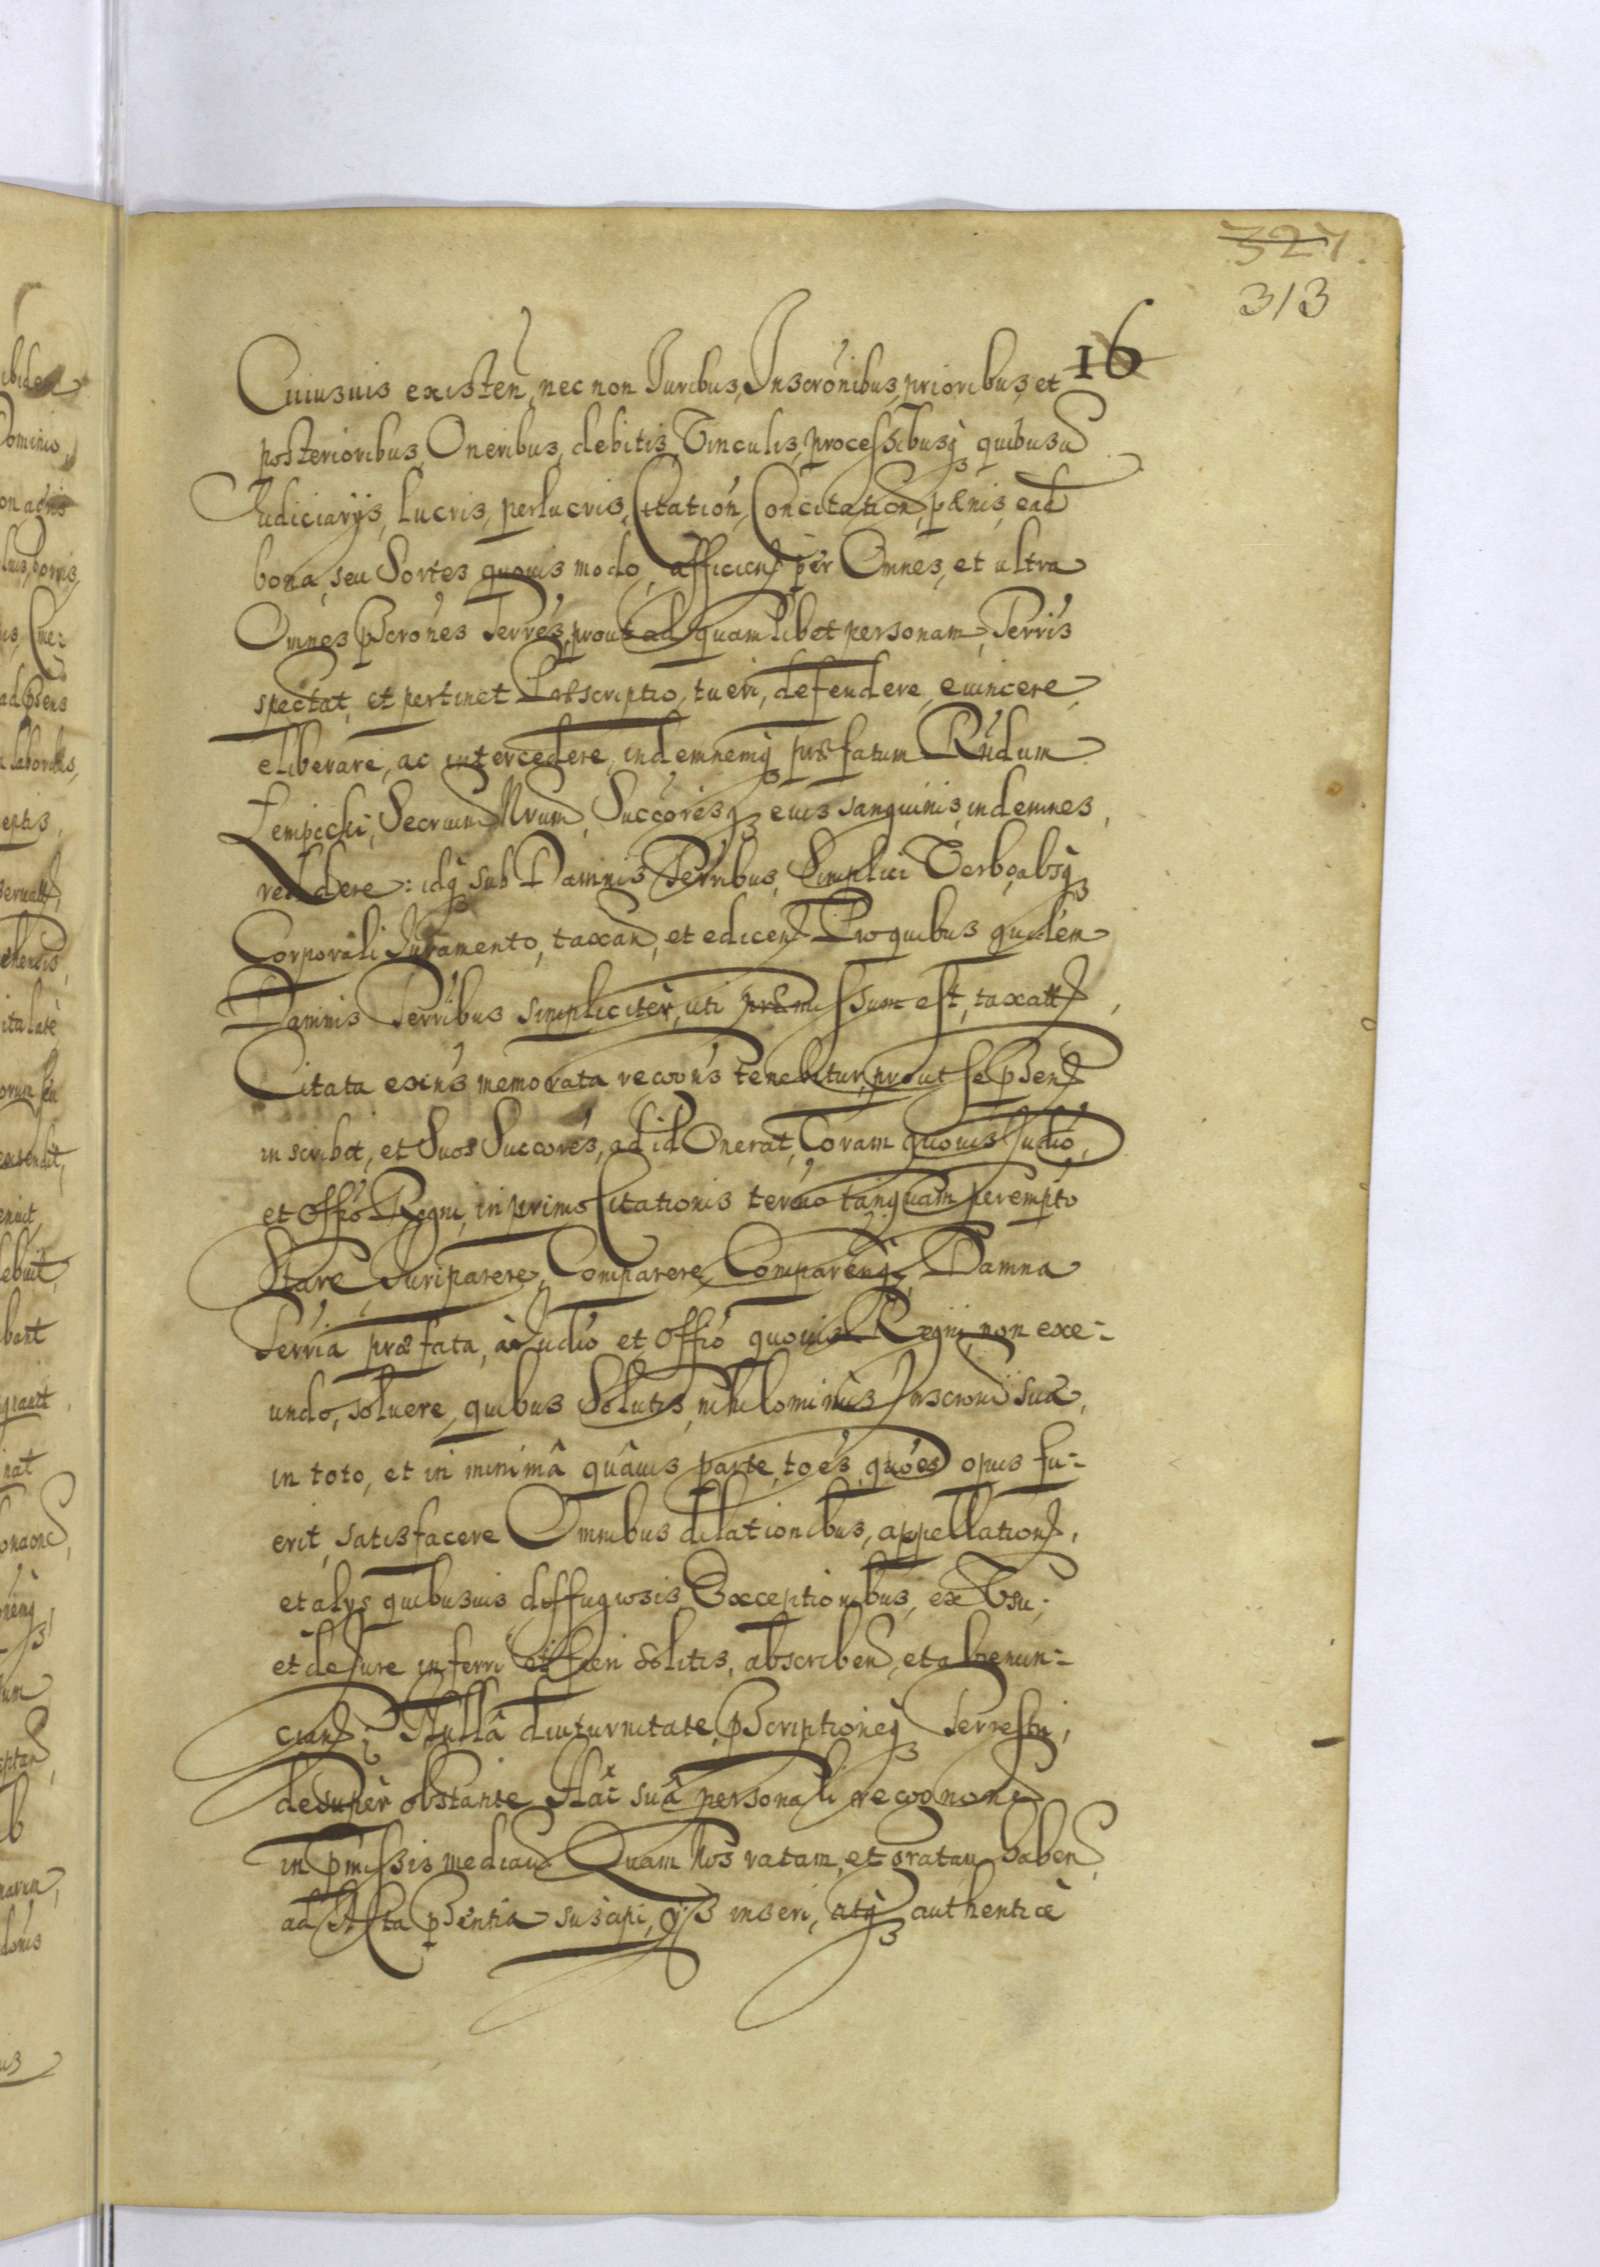 327.
313
16
Cuiusuis existen, nec non Iuribus, Inscrönibus, prioribus, et
posterioribus, Oneribus, debitis, Vinculis, processibusq̃ quibusu
Iudiciarijs, lucris, perlucris, Citation, Concitation, pænis, ead
bona, seu Sortes quouis modo, afficien per Omnes, et ultra
Omnes p̃scrönes Terrés, prout ad quamlibet personam, Terris
spectat, et pertinet Præscriptio, tueri, defendere, euincere,
eliberare, ac intercedere, indemnemq̃ præfatum Rñdum
Lempicki, Secrium Nrum, Succoresq̃ eius sanguinis, indemnes,
reddere: idq̃ sub Damnis Terribus, Simplici Verbo, absq̃
Corporali Iuramento, taxan, et edicen Pro quibus quidem
Damnis Terribus simpliciter, uti præmissum est, taxatt,
Citata exnis memorata recons tenebitur, prout se p̃sen
inscribet, et Suos Succores, ad id Onerat, Coram quouis Iudio,
et Offio Regni, in primo Citationis termo tanquam perempto
Stare Iuriparere, Comparere, Comparenq̃, Damna
Terria præfata, à Iudio et Offio quouis Regni, non exe=
undo, soluere, quibus Solutis, nihilominus Inscroni suæ,
in toto, et in minimâ quâuis parte, toes, quoes opus fu=
erit, satisfacere Omnibus dilationibus, appellation,
et alys quibusuis diffugiosis Exceptionibus, ex Vsu,
et de Iure inferri et fieri solitis, abscriben, et abrenun=
cian: Nullâ diuturnitate, p̃scriptioneq̃ Terrestri,
desuper obstante Hac suâ personali recognone
in p̃missis median Quam Nos ratam, et gratam haben,
ad Acta p̃sentia suscipi, ijs inseri, atq̃ authenticè